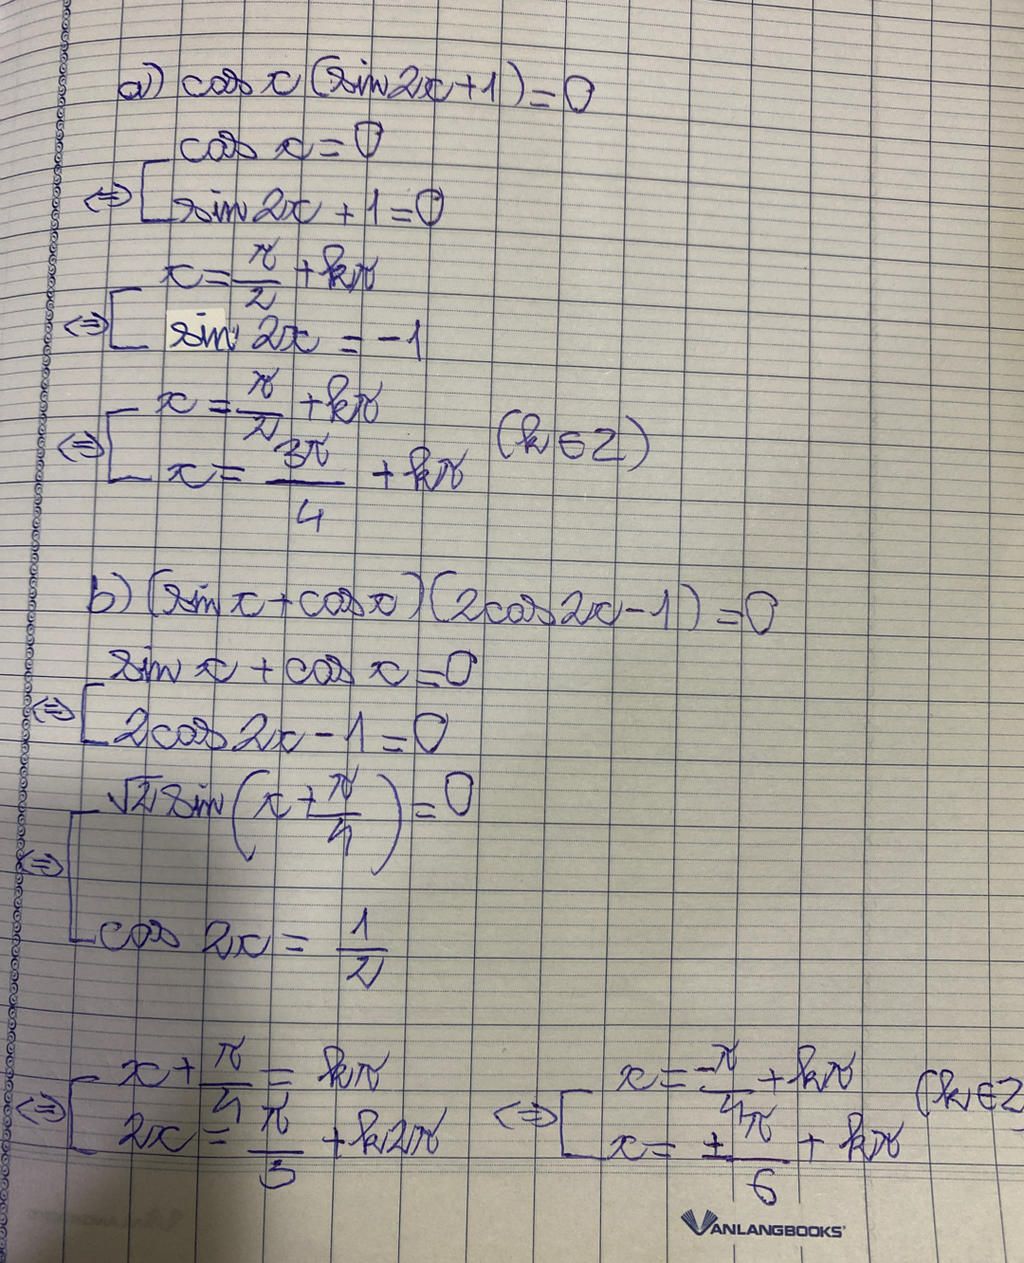 a) cos x (sin 2x + 1) = 0
⇔ [ cos x = 0
sin 2x + 1 = 0
⇔ [ x = π/2 + kπ
sin 2x = -1
⇔ [ x = π/2 + kπ
x = 3π/4 + kπ (k ∈ Z)
b) (sin x + cos x)(2cos 2x - 1) = 0
⇔ [ sin x + cos x = 0
2cos 2x - 1 = 0
⇔ [ √2 sin (x + π/4) = 0
cos 2x = 1/2
⇔ [ x + π/4 = kπ
2x = π/3 + k2π
⇔ [ x = -π/4 + kπ (k ∈ Z
x = ± π/6 + kπ
VANLANGBOOKS